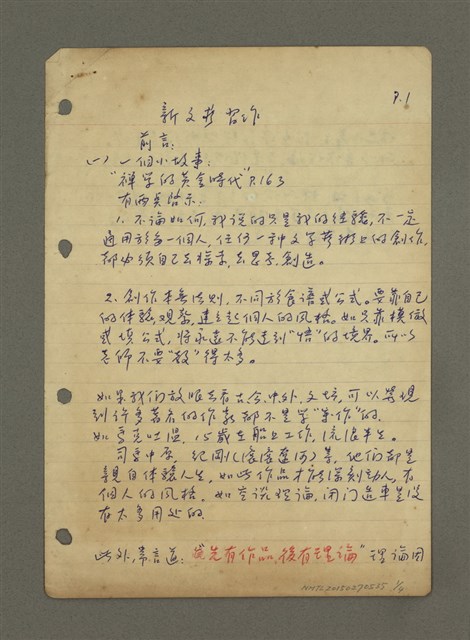 P.1
新文藝習作
前言:
(一) 一個小故事:
"禪学的黃金時代" P.163
有兩点啟示:
1. 不論如何,我說的只是我的经驗,不一定
適用於每一個人,任何一种文学藝術上的創作,
都必須自己去探索,去思考,創造。
2. 創作本無法則,不同於食譜式公式。要靠自己
的体驗、观察,建立起個人的風格。如只靠模倣
或填公式,将永遠不能達到"悟"的境界。所以
老師不要"教"得太多。
如果我們放眼去看古今中外文坛,可以發現
到许多著名的作家都不是学"寫作"的.
如 15歲在船上工作,流浪半生。
司馬中原、紀剛(滾滾遼河)等,他們都是
親自体驗人生,如此作品才能深刻动人,有
個人的風格。如空談理論,闭门造車是没
有太多用处的.
此外,常言道:"先有作品,後有理論"理論因
NMTL20150270585 1/9